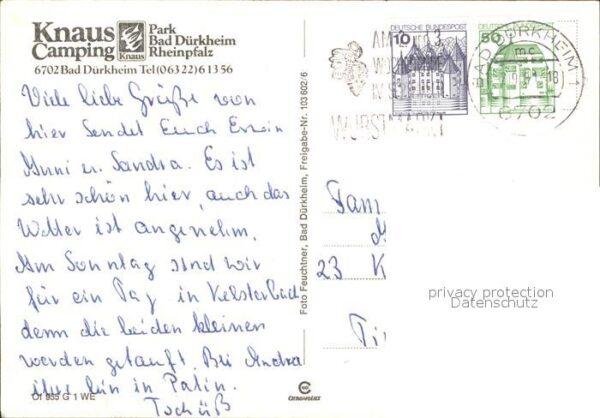 Knaus
Camping
Knaus
Park
Bad Dürkheim
Rheinpfalz
6702 Bad Dürkheim Tel(06322)61356
Viele liebe Grüße von
hier Sendet Euch Erwin
Anni u. Sandra. Es ist
sehr schön hier, auch das
Wetter ist angenehm.
Am Sonntag sind wir
für ein Tag in Kelsterbach
denn die beiden kleinen
werden getauft. Bei Andrea
bin in Patin.
Tschüß
Ol 935 G 1 WE
Foto Feuchtner, Bad Dürkheim, Freigabe-Nr. 103 602/6
CEKADE
DEUTSCHE BUNDESPOST
10
50
WURSTMARKT
BAD DÜRKHEIM 1
6702
Fam
23 K
privacy protection
Datenschutz